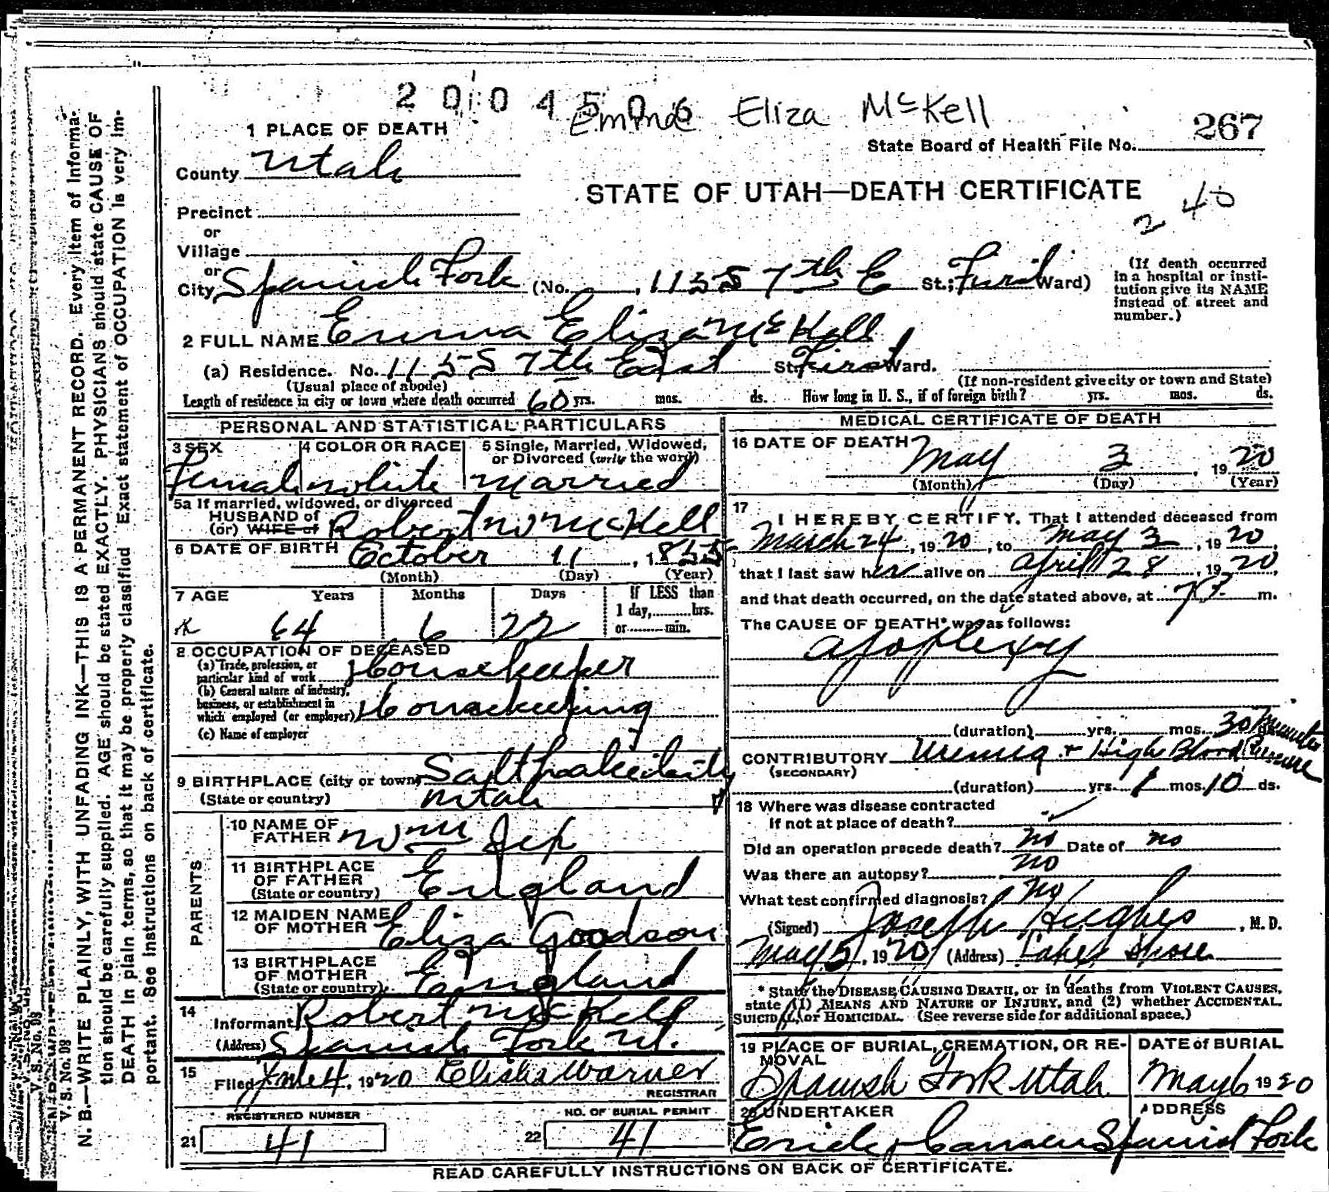 2004506
Emma Eliza McKell
1 PLACE OF DEATH
267
State Board of Health File No.
County Utah
STATE OF UTAH—DEATH CERTIFICATE
2 40
Precinct
or
Village
or
City Spanish Fork (No. 115 S 7th E St.; First Ward)
(If death occurred in a hospital or institution give its NAME instead of street and number.)
2 FULL NAME Emma Eliza McKell
(a) Residence. No. 115 S 7th East St. First Ward.
(Usual place of abode)
(If non-resident give city or town and State)
Length of residence in city or town where death occurred 60 yrs. mos. ds. How long in U. S., if of foreign birth? yrs. mos. ds.
PERSONAL AND STATISTICAL PARTICULARS
3 SEX Female
4 COLOR OR RACE white
5 Single, Married, Widowed, or Divorced (write the word) Married
5a If married, widowed, or divorced
HUSBAND of
(or) WIFE of Robert W McKell
6 DATE OF BIRTH October 11, 1855
(Month) (Day) (Year)
7 AGE Years Months Days If LESS than
1 day,......hrs.
or......min.
64 6 22
8 OCCUPATION OF DECEASED
(a) Trade, profession, or particular kind of work Housekeeper
(b) General nature of industry, business, or establishment in which employed (or employer) Housekeeping
(c) Name of employer
9 BIRTHPLACE (city or town) Salt Lake City
(State or country) Utah
PARENTS
10 NAME OF FATHER Wm Jex
11 BIRTHPLACE OF FATHER (State or country) England
12 MAIDEN NAME OF MOTHER Eliza Goodson
13 BIRTHPLACE OF MOTHER (State or country) England
14 Informant Robert McKell
(Address) Spanish Fork Ut.
15 Filed June 4, 1920 Elisha Warner
REGISTRAR
REGISTERED NUMBER
21 41
NO. OF BURIAL PERMIT
22 41
MEDICAL CERTIFICATE OF DEATH
16 DATE OF DEATH May 3, 1920
(Month) (Day) (Year)
17 I HEREBY CERTIFY, That I attended deceased from
March 24, 1920, to May 3, 1920,
that I last saw her alive on April 28, 1920,
and that death occurred, on the date stated above, at 7 P. m.
The CAUSE OF DEATH* was as follows:
apoplexy
(duration) yrs. mos. 30 Minutes
CONTRIBUTORY Uremia + High Blood Pressure
(SECONDARY)
(duration) yrs. 1 mos. 10 ds.
18 Where was disease contracted
If not at place of death?
Did an operation precede death? no Date of no
Was there an autopsy? no
What test confirmed diagnosis? no
(Signed) Joseph Hughes, M. D.
May 5, 1920 (Address) Lake Shore
* State the DISEASE CAUSING DEATH, or in deaths from VIOLENT CAUSES, state (1) MEANS AND NATURE OF INJURY, and (2) whether ACCIDENTAL, SUICIDAL, or HOMICIDAL. (See reverse side for additional space.)
19 PLACE OF BURIAL, CREMATION, OR REMOVAL Spanish Fork Utah
DATE of BURIAL May 6 1920
20 UNDERTAKER
ADDRESS Spanish Fork
READ CAREFULLY INSTRUCTIONS ON BACK OF CERTIFICATE.
N. B.—WRITE PLAINLY, WITH UNFADING INK—THIS IS A PERMANENT RECORD. Every item of information should be carefully supplied. AGE should be stated EXACTLY. PHYSICIANS should state CAUSE OF DEATH in plain terms, so that it may be properly classified. Exact statement of OCCUPATION is very important. See instructions on back of certificate.
V. S. No. 98